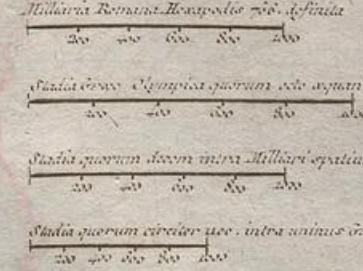 Milliaria Romana Hexapedis 756. definita
200 400 600 800 1000
Stadia Græc. Olympica quorum octo æquan
200 400 600 800 1000
Stadia quorum decem intra Milliari spatiu
200 400 600 800 1000
Stadia quorum circiter intra unius
200 400 600 800 1000